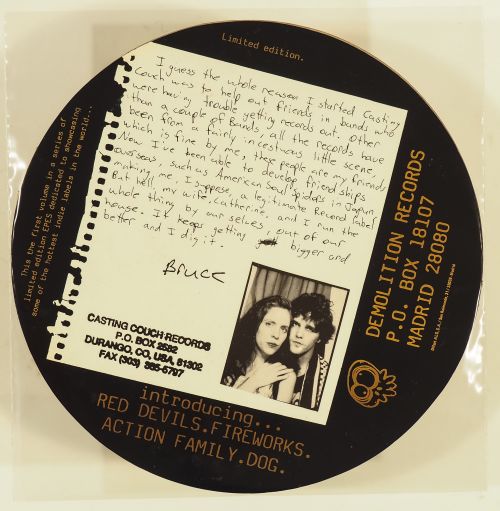 Limited edition.
This the first volume in a series of
limited edition EPES dedicated to showcasing
some of the hottest indie labels in the world...
I guess the whole reason I started Casting
Couch was to help out friends in bands who
were having trouble getting records out. Other
than a couple of bands, all the records have
been from a fairly incestuous little scene,
which is fine by me, these people are my friends.
Now I've been able to develop friendships
overseas, such as American Soul Spiders in Japan,
making me, I suppose, a legitimate Record label
But hell, my wife, Catherine, and I run the
whole thing by our selves, out of our
house. It keeps getting bigger and
better and I dig it.
Bruce
CASTING COUCH RECORDS
P.O. BOX 2582
DURANGO, CO, USA, 81302
FAX (303) 385-5797
DEMOLITION RECORDS
P.O. BOX 18107
MADRID 28080
introducing...
RED DEVILS.FIREWORKS.
ACTION FAMILY.DOG.